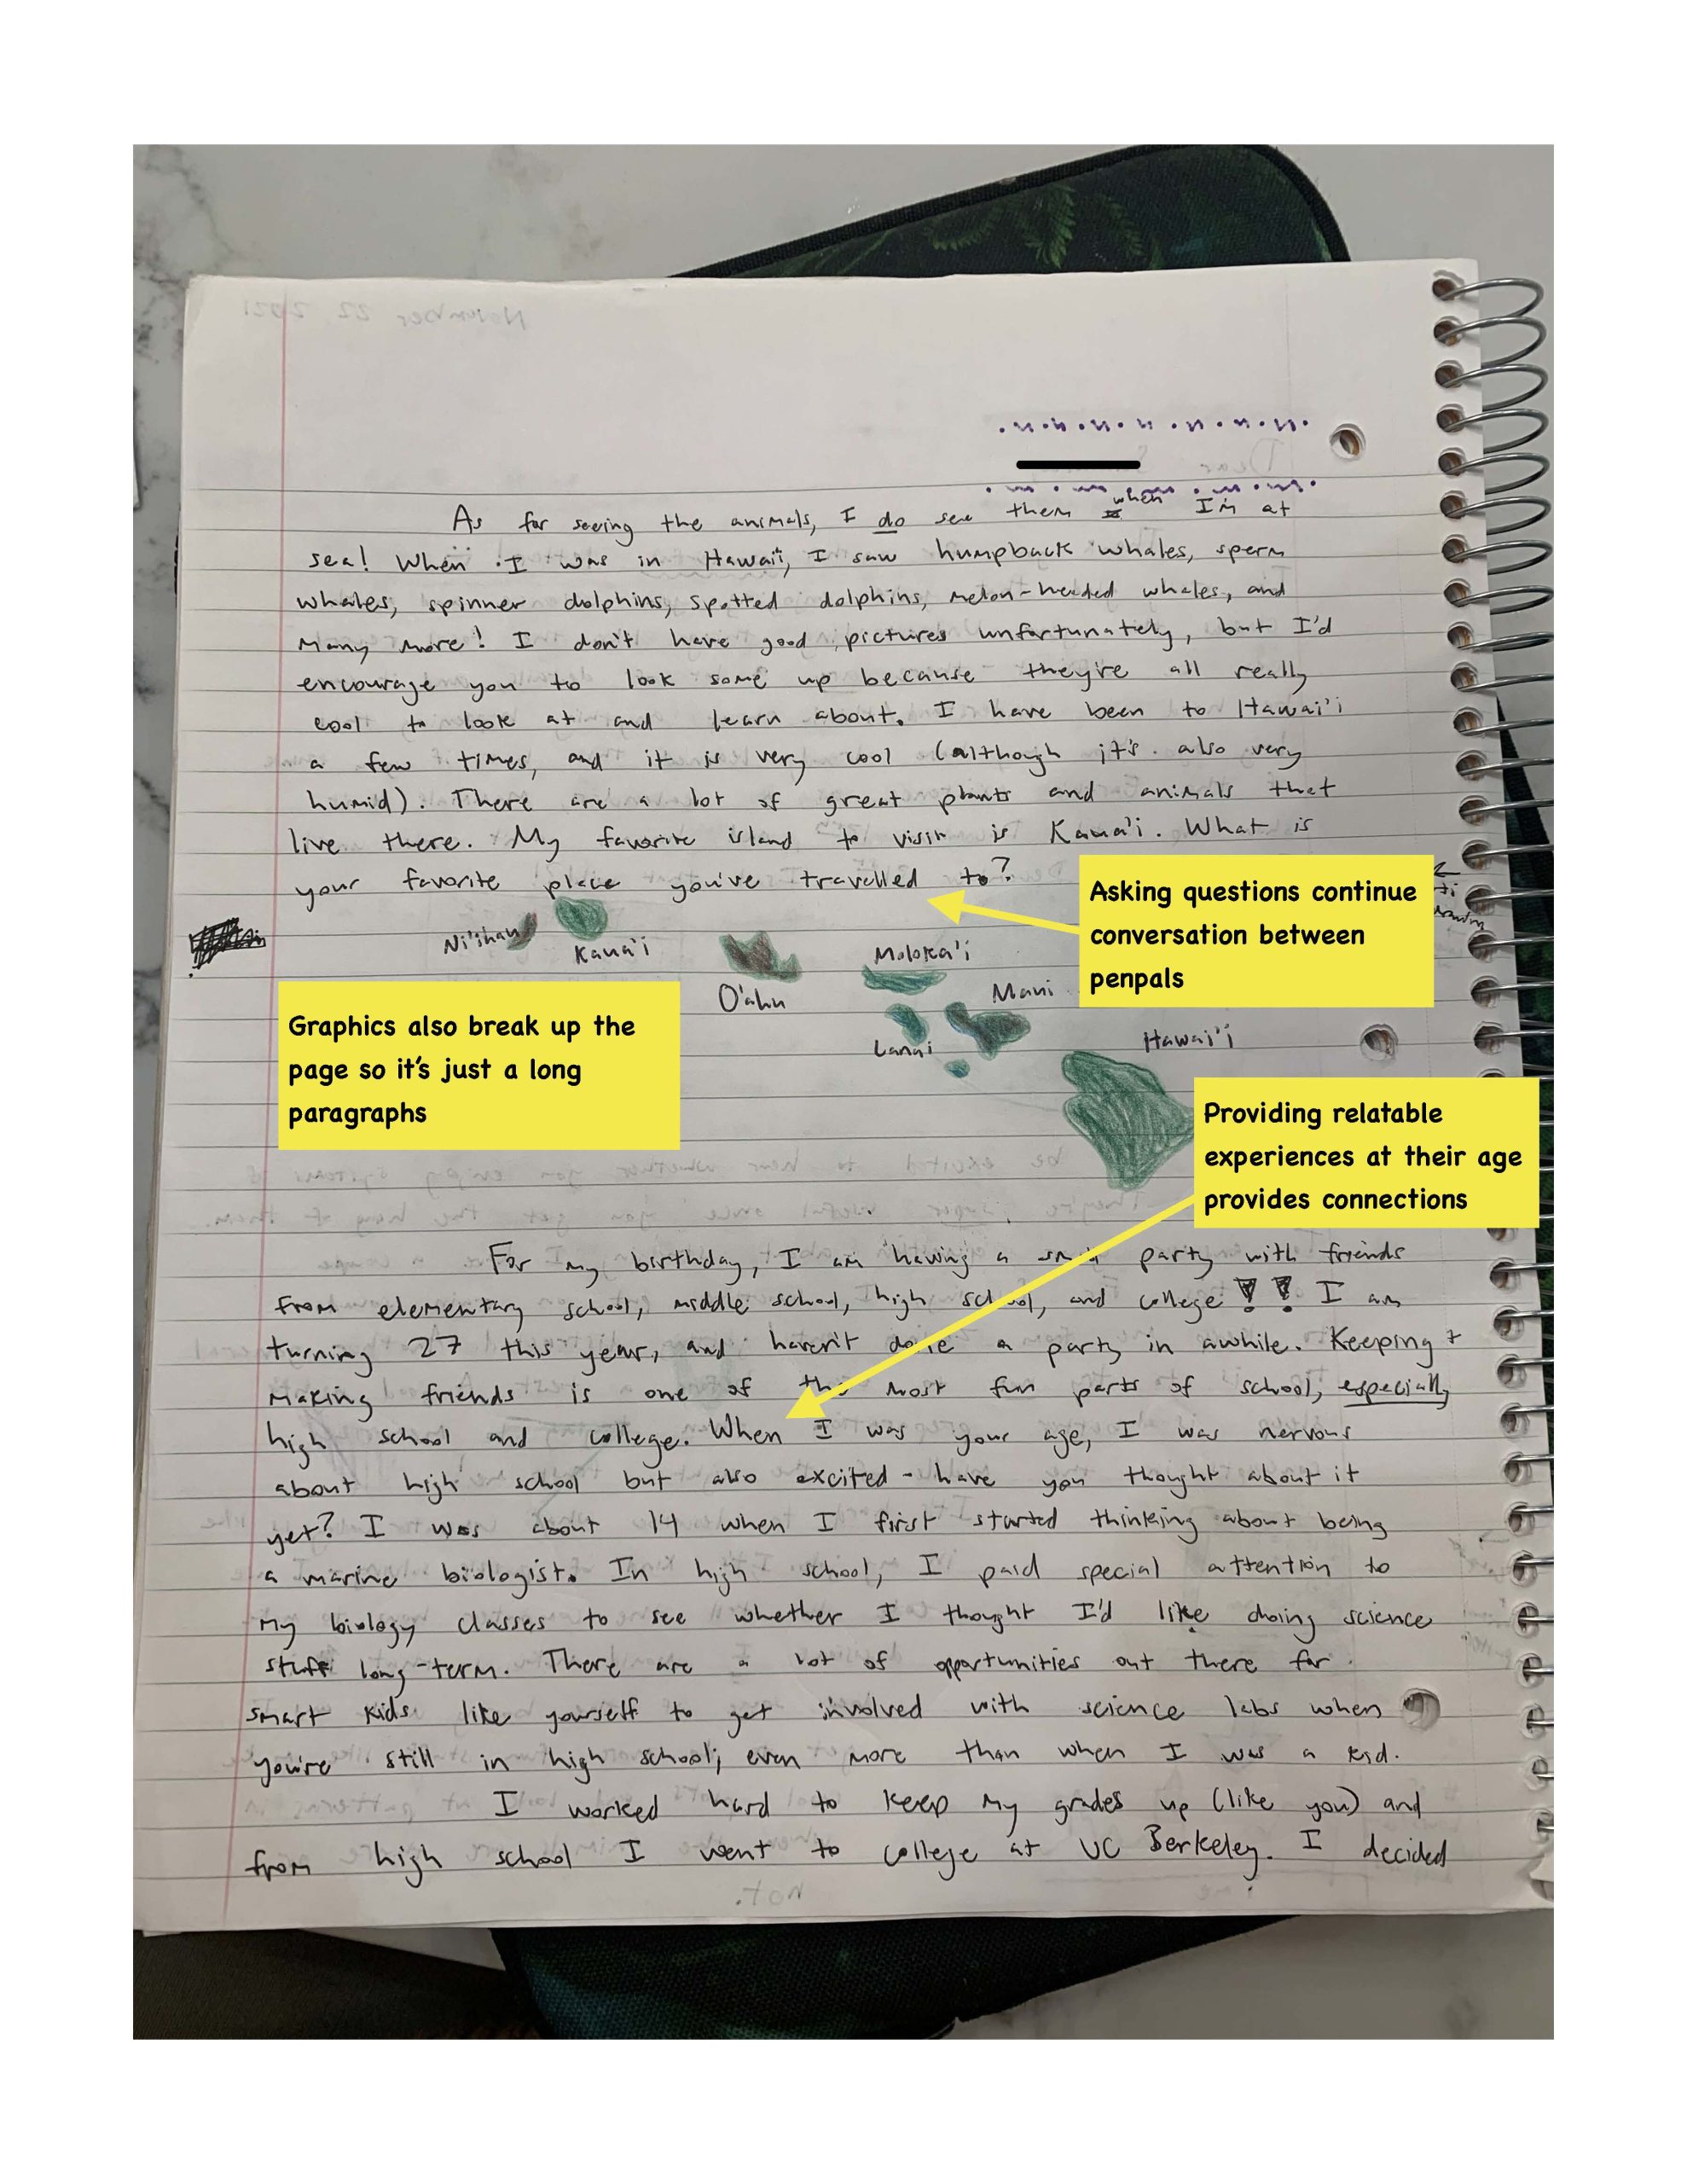 As for seeing the animals, I do see them when I'm at
sea! When I was in Hawai'i, I saw humpback whales, sperm
whales, spinner dolphins, spotted dolphins, melon-headed whales, and
many more! I don't have good pictures unfortunately, but I'd
encourage you to look some up because they're all really
cool to look at and learn about. I have been to Hawai'i
a few times, and it is very cool (although it's also very
humid). There are a lot of great plants and animals that
live there. My favorite island to visit is Kaua'i. What is
your favorite place you've travelled to?
Asking questions continue
conversation between
penpals
Ni'ihau
Kaua'i
O'ahu
Moloka'i
Maui
Lanai
Hawai'i
Graphics also break up the
page so it's just a long
paragraphs
Providing relatable
experiences at their age
provides connections
For my birthday, I am having a small party with friends
from elementary school, middle school, high school, and college!! I am
turning 27 this year, and haven't done a party in awhile. Keeping +
making friends is one of the most fun parts of school, especially
high school and college. When I was your age, I was nervous
about high school but also excited - have you thought about it
yet? I was about 14 when I first started thinking about being
a marine biologist. In high school, I paid special attention to
my biology classes to see whether I thought I'd like doing science
stuff long-term. There are a lot of opportunities out there for
smart kids like yourself to get involved with science labs when
you're still in high school; even more than when I was a kid.
I worked hard to keep my grades up (like you) and
from high school I went to college at UC Berkeley. I decided